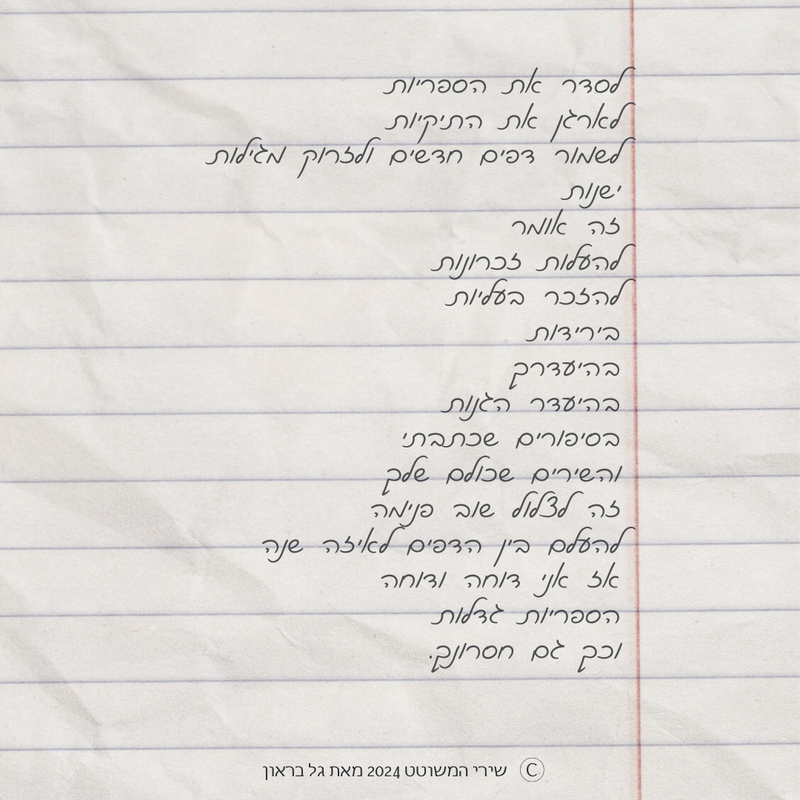 לסדר את הספריות
לארגן את התיקיות
לשמור דפים חדשים ולזרוק מגילות
ישנות
זה אומר
להעלות זכרונות
להזכר בעליות
בירידות
בהיעדרך
בהיעדר הגנות
בסיפורים שכתבתי
והשירים שכולם שלך
זה לצלול שוב פנימה
להעלם בין הדפים לאיזה שנה
אז אני דוחה ודוחה
הספריות גדלות
וכך גם חסרונך.
© שירי המשוטט 2024 מאת גל בראון